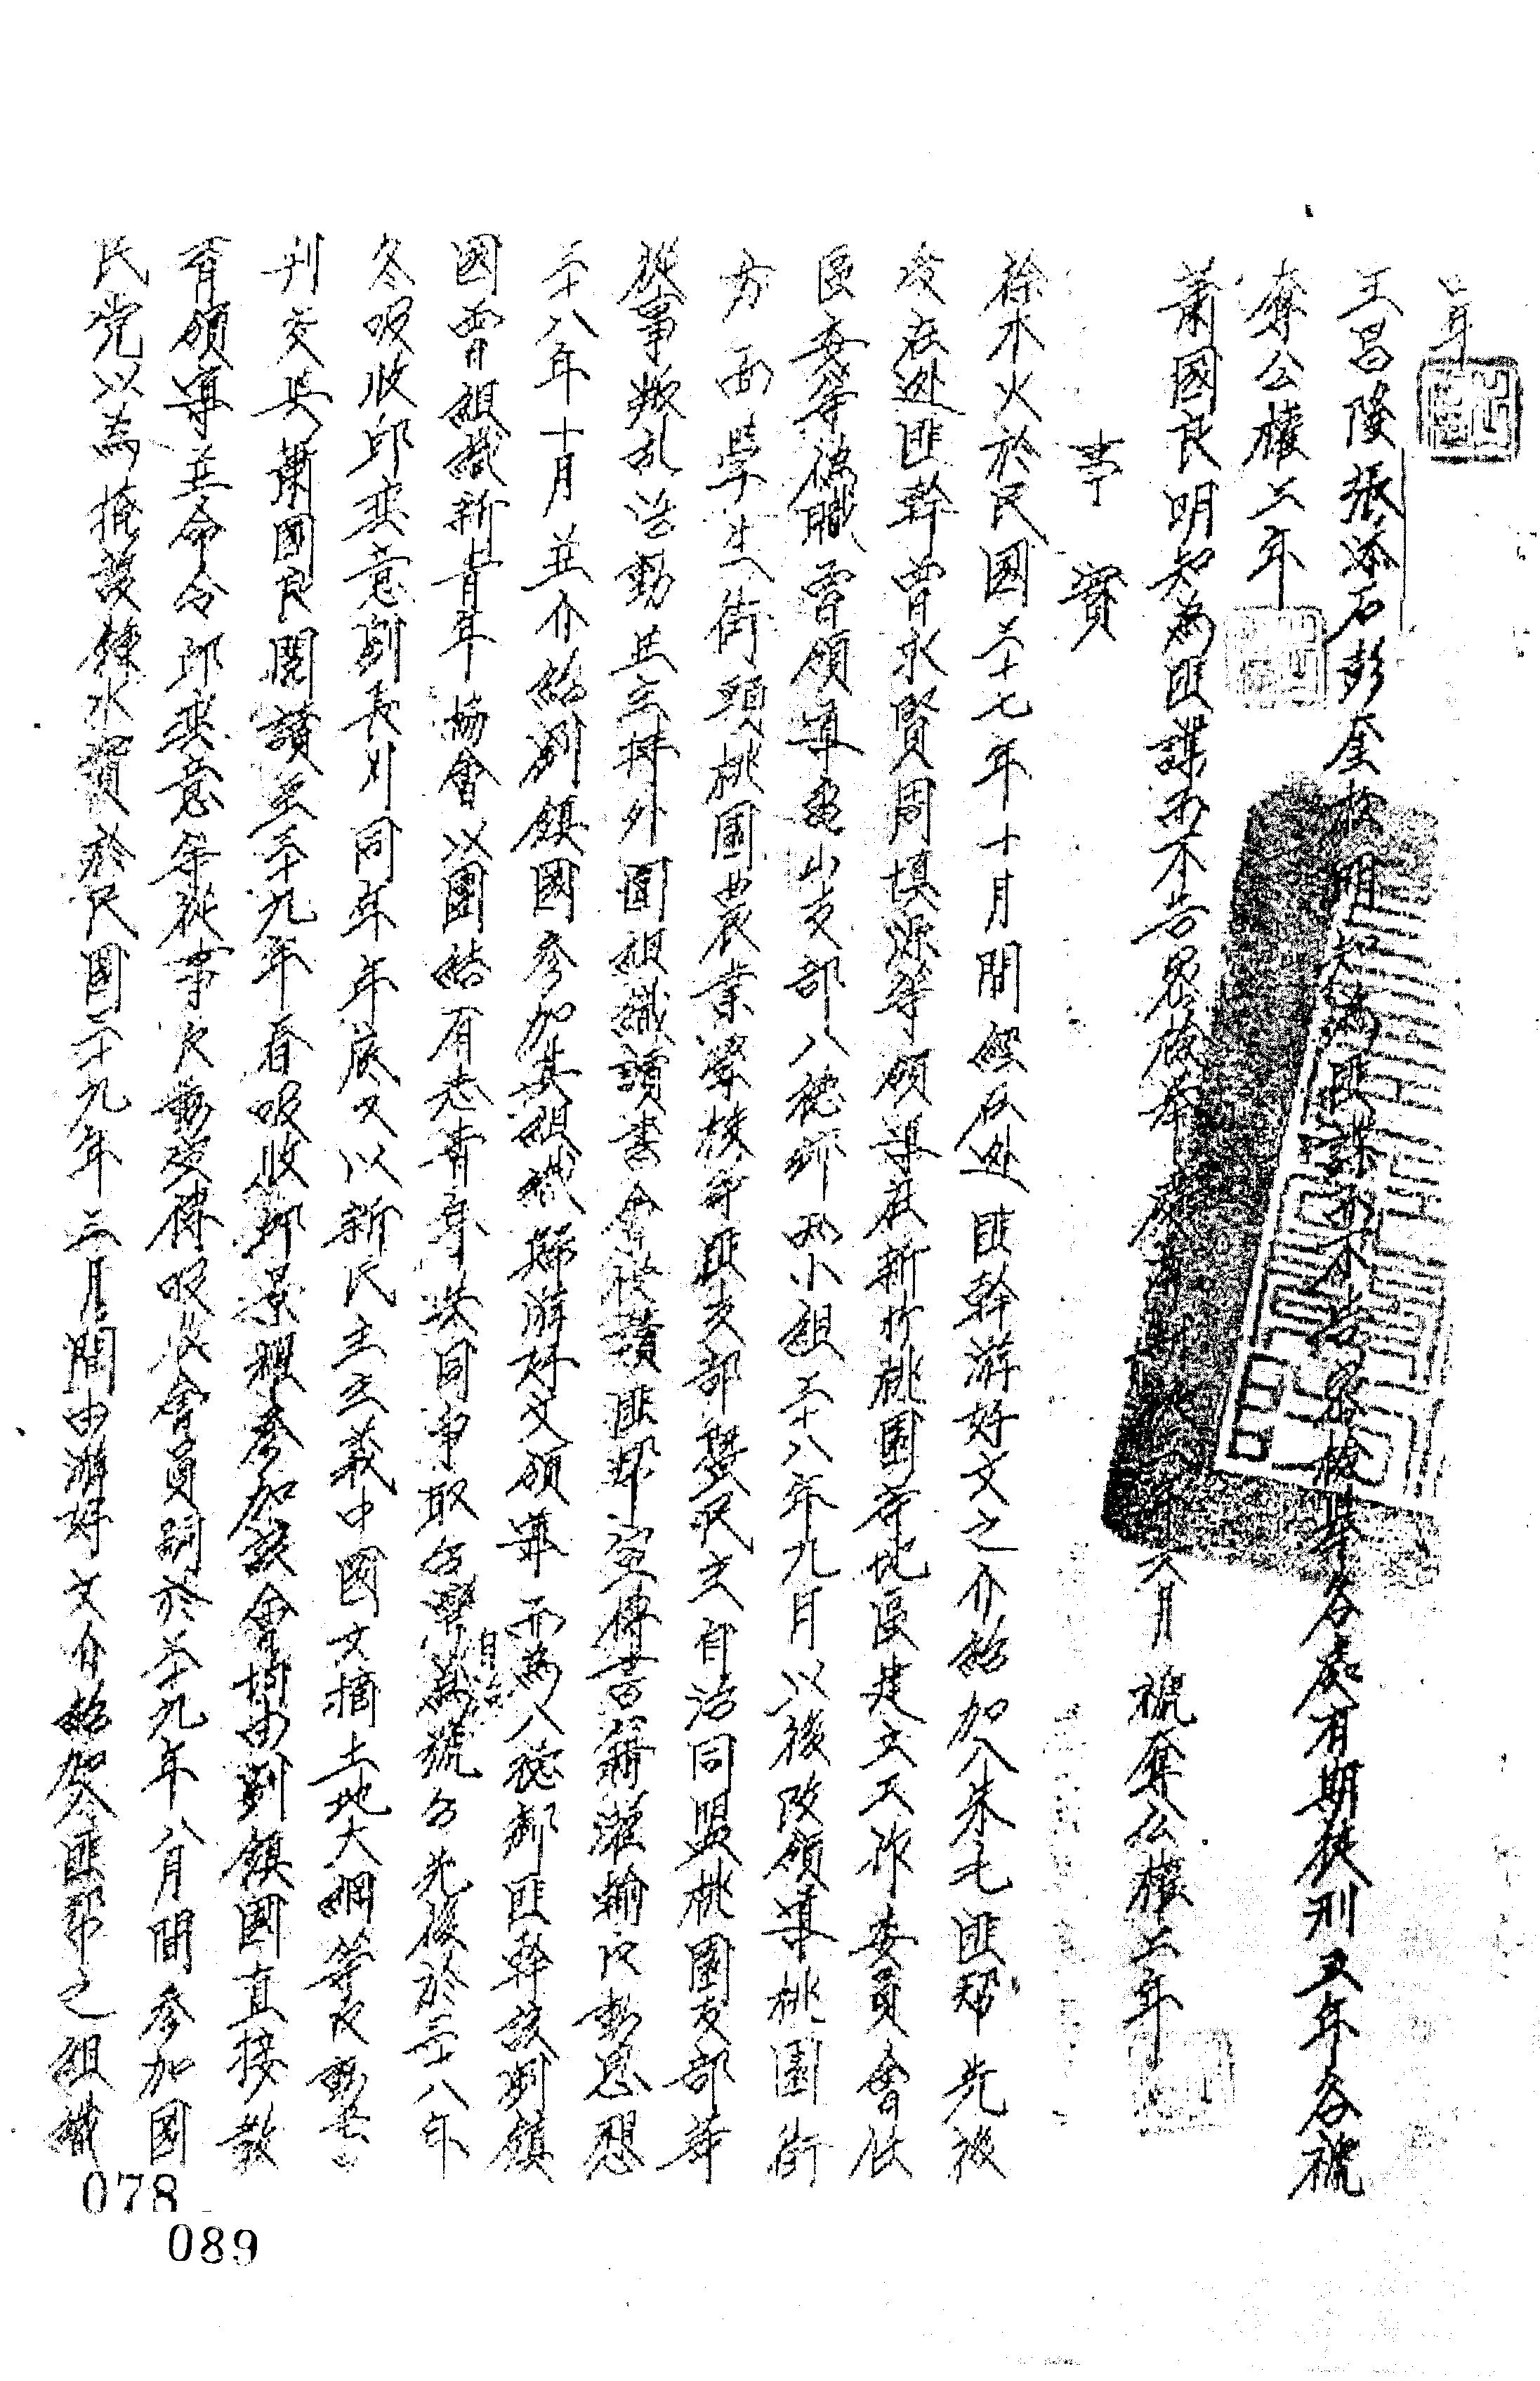 年
王昌隆張添石彭奎 明知為匪諜而不告密檢舉各處有期徒刑五年各褫
奪公權三年
蕭國良明知為匪諜而不告密檢舉處有期徒刑 年六月褫奪公權二年
事實
徐木火於民國三十七年十月間經在逃匪幹游好文之介紹加入朱毛匪幫先後
受在逃匪幹曾水賢周 等領導在新竹桃園等地區建立工作委員會任
區委等偽職曾領導龜山支部八德鄉 小組三十八年九月以後改領導桃園街
方面學生街頭桃園農業學校等匪支部 民主自治同盟桃園支部等
從事叛乱活動並在 外圍組織讀書會 讀匪幫宣傳書籍灌輸反動思想
三十八年十月並介紹劉鎮國參加其組織歸游好文領導而為八德鄉匪幹該劉鎮
國曾組織新青年協會以團結有志青年共同爭取台灣自治為號召先後於三十八年
冬吸收邱奕意劉長 同年年底又以新民主主義中國文摘土地大綱等反動書
刊交其蕭國良閱讀至三十九年春吸收邱景 參加該會均由劉鎮國直接教
育領導並命令邱奕意等從事反動宣傳吸收會員嗣於三十九年八月間參加國
民党以為掩護鍾水 於民國三十九年三月間由游好文介紹加入匪幫之組織
078
089